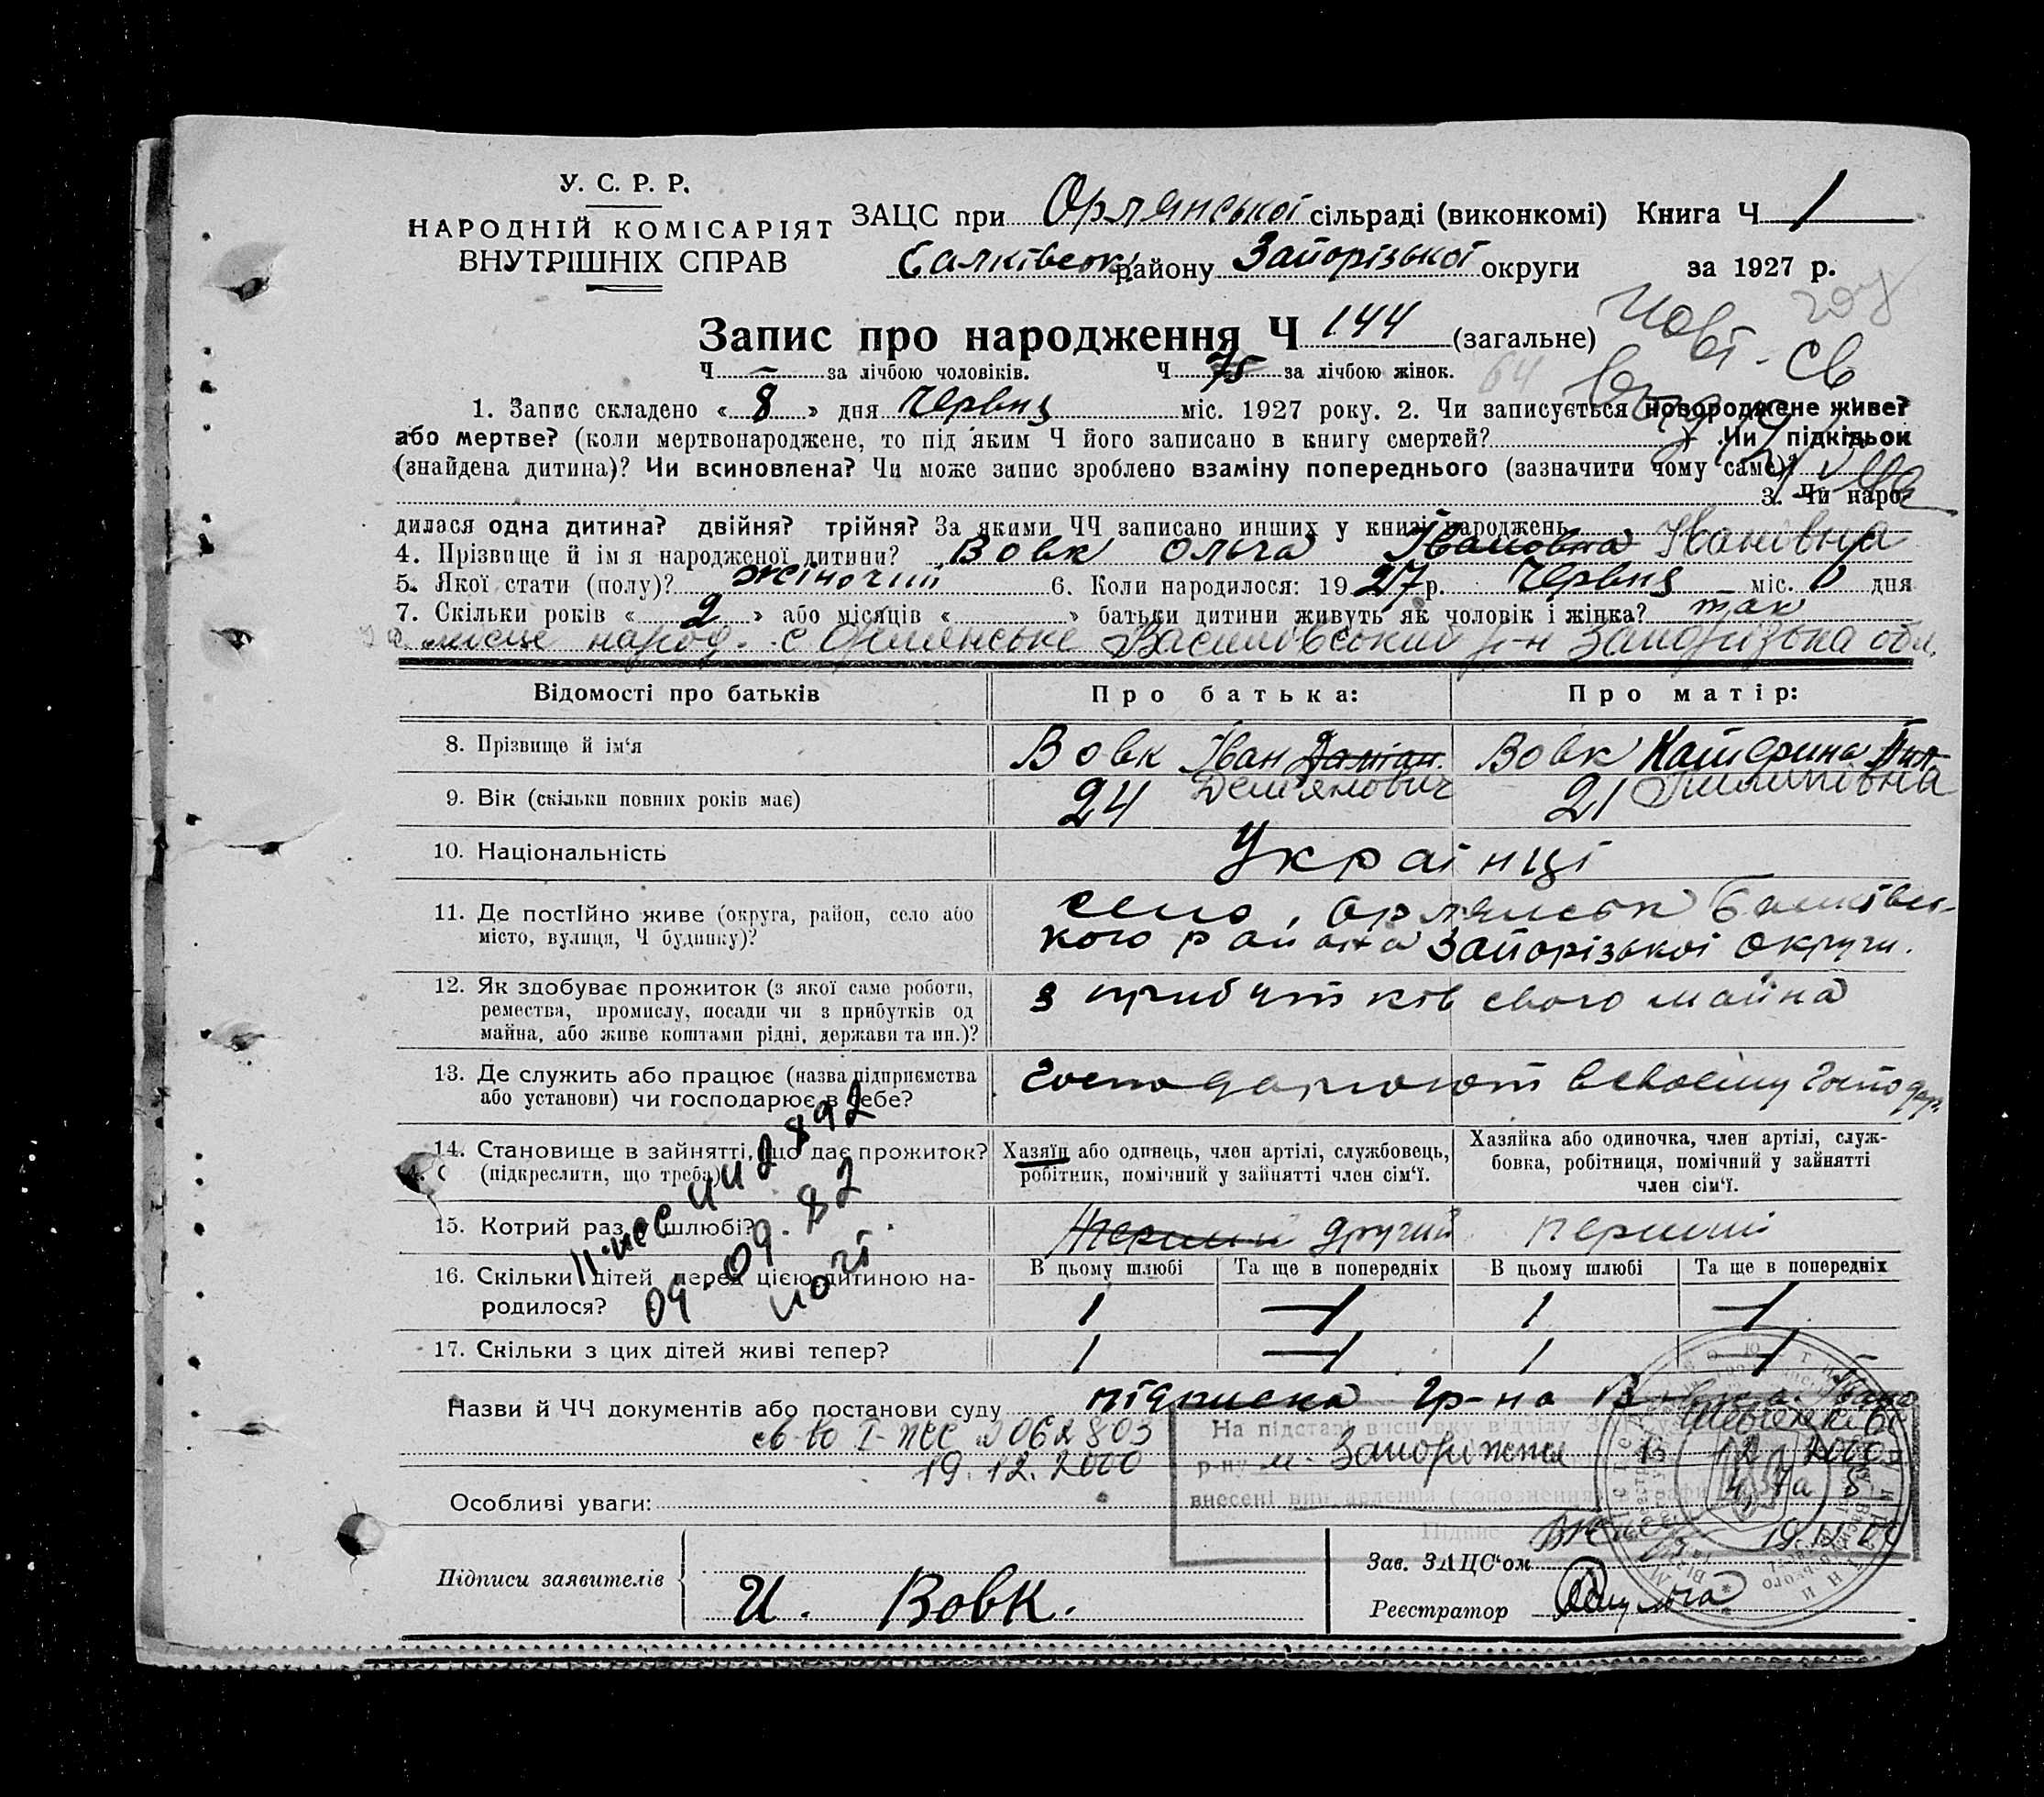 У. С. Р. Р.
НАРОДНІЙ КОМІСАРІЯТ
ВНУТРІШНІХ СПРАВ
ЗАЦС при Орлянської сільраді (виконкомі) Книга Ч 1
району Запорізької округи за 1927 р.
Запис про народження Ч 144 (загальне)
Ч — за лічбою чоловіків. Ч 75 за лічбою жінок. 64
1. Запис складено « 8 » дня червня міс. 1927 року. 2. Чи записується новороджене живе?
або мертве? (коли мертвонароджене, то під яким Ч його записано в книгу смертей? Чи підкідьок
(знайдена дитина)? Чи всиновлена? Чи може запис зроблено взаміну попереднього (зазначити чому саме)?
3. Чи наро-
дилася одна дитина? двійня? трійня? За якими ЧЧ записано инших у книзі народжень
4. Прізвище й ім я народженої дитини? Вовк Ольга Івановна Іванівна
5. Якої стати (полу)? жіночий 6. Коли народилося: 19 27 р. червня міс. дня
7. Скільки років « 2 » або місяців « » батьки дитини живуть як чоловік і жінка? так
місце народ. с Орлянське Василівський р-н Запорізька обл.
Відомості про батьків Про батька: Про матір:
8. Прізвище й ім‘я Вовк Іван Даміан. Вовк Катерина Пил.
Дем'янович Пилипівна
9. Вік (скільки повних років має) 24 21
10. Національність Українці
11. Де постійно живе (округа, район, село або
місто, вулиця, Ч будинку)?
село, Орлянськ
кого района Запорізької округи.
12. Як здобуває прожиток (з якої саме роботи,
ремества, промислу, посади чи з прибутків од
майна, або живе коштами рідні, держави та ин.)?
з прибутків свого майна
13. Де служить або працює (назва підприємства
або установи) чи господарює в себе?
господарюют в своєму господар.
14. Становище в зайнятті, що дає прожиток?
(підкреслити, що треба)
Хазяїн або одинець, член артілі, службовець,
робітник, помічний у зайнятті член сім‘ї.
Хазяйка або одиночка, член артілі, служ-
бовка, робітниця, помічний у зайнятті
член сім‘ї.
15. Котрий раз в шлюбі? Перший другий перший
16. Скільки дітей перед цією дитиною на-
родилося?
В цьому шлюбі Та ще в попередніх В цьому шлюбі Та ще в попередніх
1 — 1 —
17. Скільки з цих дітей живі тепер? 1 — 1 —
09.09.82
Назви й ЧЧ документів або постанови суду підписка гр-на
св-во І-ЖС 062803
19.12.2000
На підставі висновку відділу
р-ну м. Запоріжжя 13 12 2000
внесені виправлення (доповнення)
Підпис
Особливі уваги:
Підписи заявителів И. Вовк.
Зав. ЗАЦС‘ом
Реєстратор